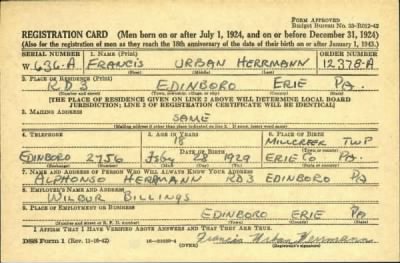 FORM APPROVED
Budget Bureau No. 33-R012-42
REGISTRATION CARD (Men born on or after July 1, 1924, and on or before December 31, 1924)
(Also for the registration of men as they reach the 18th anniversary of the date of their birth on or after January 1, 1943.)
SERIAL NUMBER 1. NAME (Print) ORDER NUMBER
W-636-A FRANCIS URBAN HERRMANN 12378-A
(First) (Middle) (Last)
2. PLACE OF RESIDENCE (Print)
RD3 EDINBORO ERIE PA.
(Number and street) (Town, township, village, or city) (County) (State)
[THE PLACE OF RESIDENCE GIVEN ON LINE 2 ABOVE WILL DETERMINE LOCAL BOARD
JURISDICTION; LINE 2 OF REGISTRATION CERTIFICATE WILL BE IDENTICAL]
3. MAILING ADDRESS
SAME
[Mailing address if other than place indicated on line 2. If same, insert word same]
4. TELEPHONE 5. AGE IN YEARS 6. PLACE OF BIRTH
18 MILLCREEK TWP
DATE OF BIRTH (Town or county)
EDINBORO 2756 28 1929 ERIE CO PA.
(Exchange) (Number) (Mo.) (Day) (Yr.) (State or country)
7. NAME AND ADDRESS OF PERSON WHO WILL ALWAYS KNOW YOUR ADDRESS
ALPHONSO HERRMANN RD3 EDINBORO PA
8. EMPLOYER'S NAME AND ADDRESS
WILBUR BILLINGS
9. PLACE OF EMPLOYMENT OR BUSINESS
EDINBORO ERIE PA
(Number and street or R. F. D. number) (Town) (County) (State)
I AFFIRM THAT I HAVE VERIFIED ABOVE ANSWERS AND THAT THEY ARE TRUE.
DSS Form 1 (Rev. 11-16-42) (OVER) Francis Urban Herrmann
(Registrant's signature)